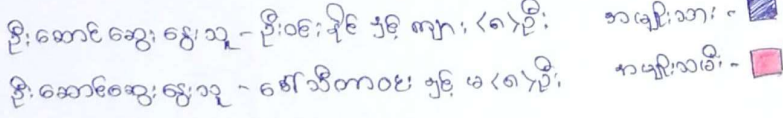 ဦးဆောင်ဆွေးနွေးသူ - ဦးဝင်းနိုင် နှင့် ကျား <၈> ဦး အမျိုးသား -
ဦးဆောင်ဆွေးနွေးသူ - ဒေါ်သီတာဝေ နှင့် မ <၈> ဦး အမျိုးသမီး -